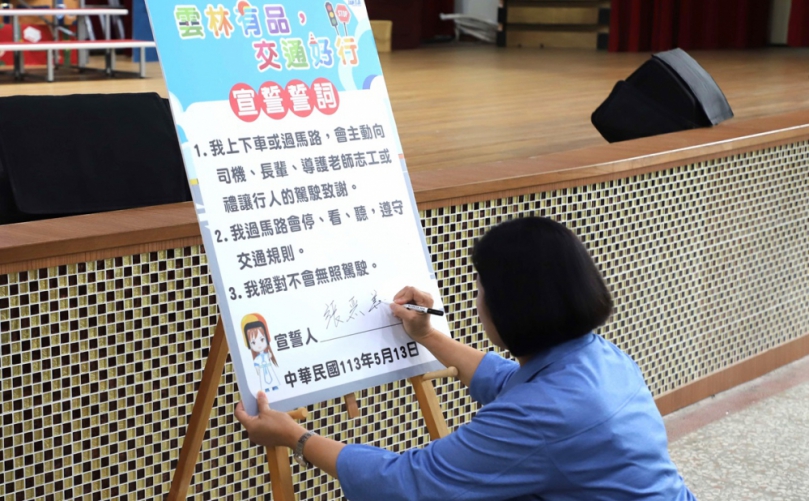 雲林有品，
交通好行
宣誓誓詞
1.我上下車或過馬路，會主動向
司機、長輩、導護老師志工或
禮讓行人的駕駛致謝。
2.我過馬路會停、看、聽，遵守
交通規則。
3.我絕對不會無照駕駛。
宣誓人
中華民國113年5月13日